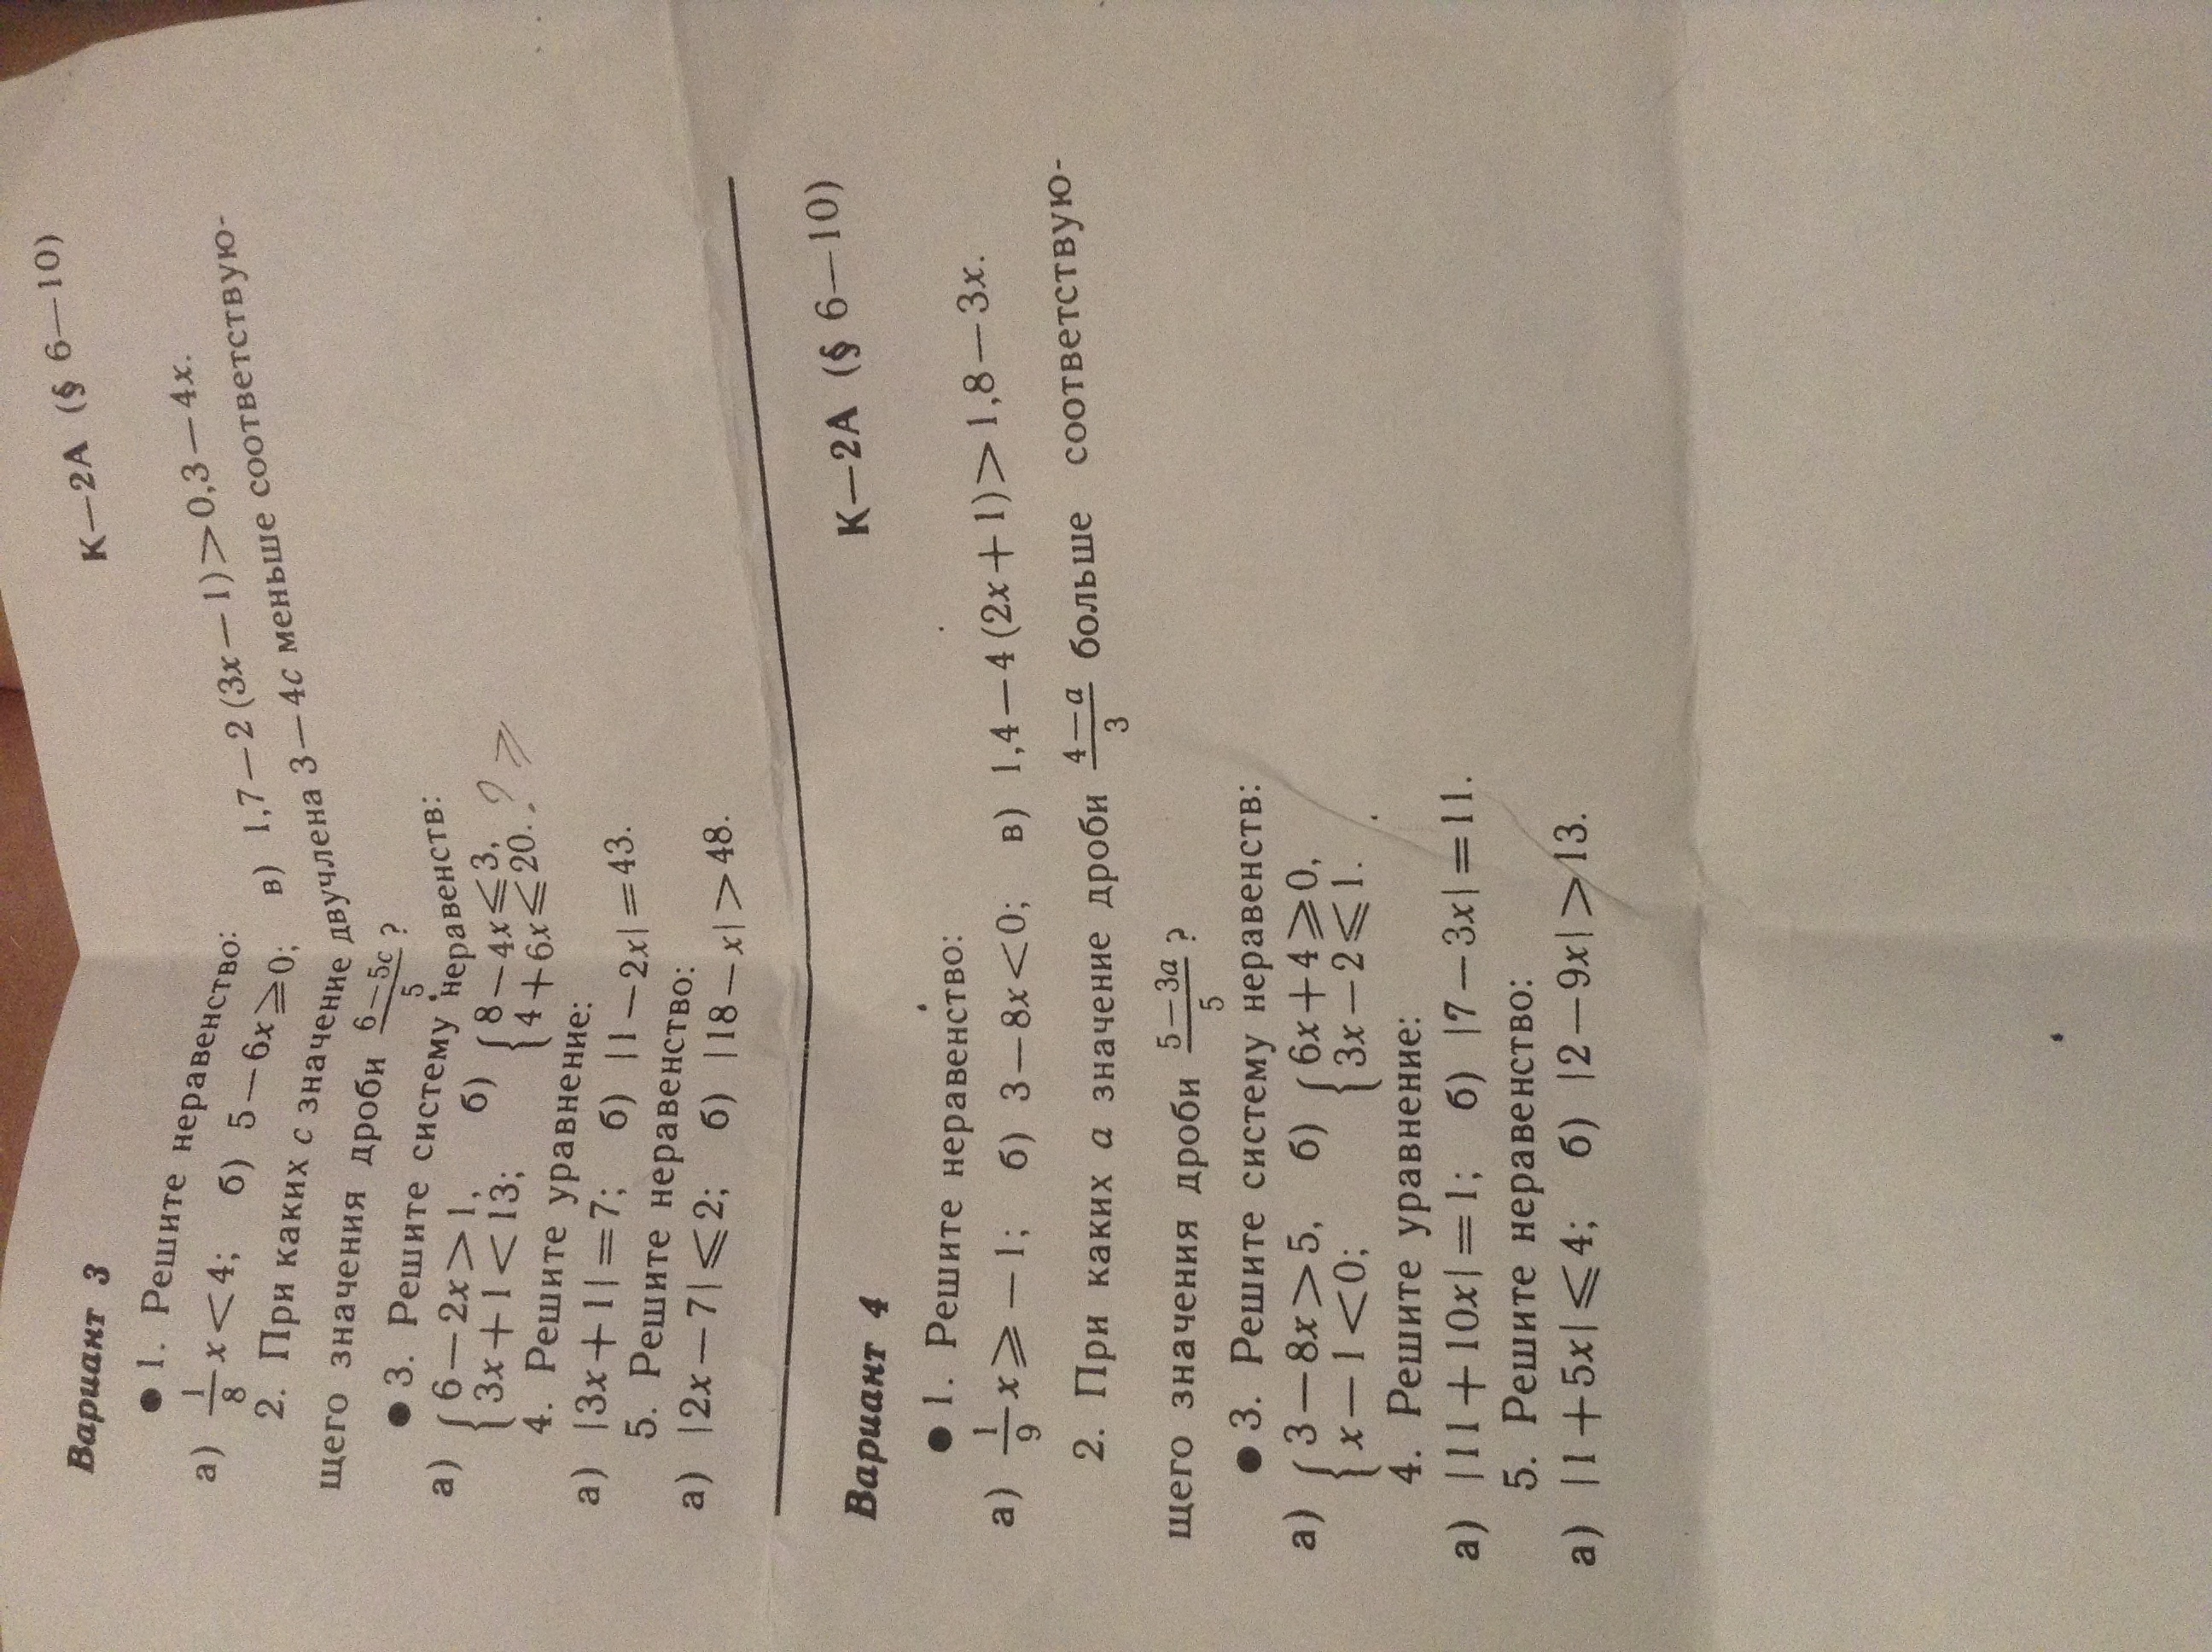 Вариант 3 К—2А (§ 6—10)
● 1. Решите неравенство:
а) 1/8 x < 4; б) 5 — 6x ⩾ 0; в) 1,7 — 2 (3x — 1) > 0,3 — 4x.
2. При каких c значение двучлена 3 — 4c меньше соответствую-
щего значения дроби (6 — 5c)/5 ?
● 3. Решите систему неравенств:
а) { 6 — 2x > 1, б) { 8 — 4x ⩽ 3,
{ 3x + 1 < 13; { 4 + 6x ⩽ 20. ? ⩾
4. Решите уравнение:
а) |3x + 1| = 7; б) |1 — 2x| = 43.
5. Решите неравенство:
а) |2x — 7| ⩽ 2; б) |18 — x| > 48.
Вариант 4 К—2А (§ 6—10)
● 1. Решите неравенство:
а) 1/9 x ⩾ — 1; б) 3 — 8x < 0; в) 1,4 — 4 (2x + 1) > 1,8 — 3x.
2. При каких a значение дроби (4 — a)/3 больше соответствую-
щего значения дроби (5 — 3a)/5 ?
● 3. Решите систему неравенств:
а) { 3 — 8x > 5, б) { 6x + 4 ⩾ 0,
{ x — 1 < 0; { 3x — 2 ⩽ 1.
4. Решите уравнение:
а) |11 + 10x| = 1; б) |7 — 3x| = 11.
5. Решите неравенство:
а) |1 + 5x| ⩽ 4; б) |2 — 9x| > 13.